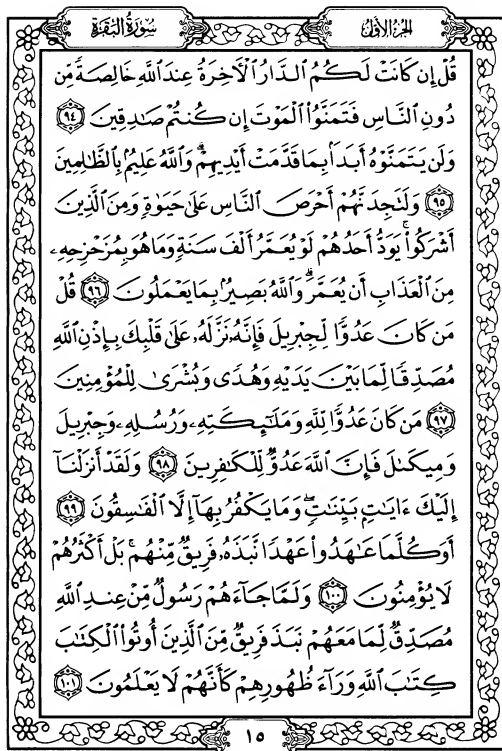 سُورَةُ البَقَرَةِ
الجُزءُ الأَوَّل
قُلْ إِن كَانَتْ لَكُمُ الدَّارُ الْآخِرَةُ عِندَ اللَّهِ خَالِصَةً مِّن
دُونِ النَّاسِ فَتَمَنَّوُا الْمَوْتَ إِن كُنتُمْ صَادِقِينَ ٩٤
وَلَن يَتَمَنَّوْهُ أَبَدًا بِمَا قَدَّمَتْ أَيْدِيهِمْ ۗ وَاللَّهُ عَلِيمٌ بِالظَّالِمِينَ
٩٥ وَلَتَجِدَنَّهُمْ أَحْرَصَ النَّاسِ عَلَىٰ حَيَوٰةٍ وَمِنَ الَّذِينَ
أَشْرَكُوا ۚ يَوَدُّ أَحَدُهُمْ لَوْ يُعَمَّرُ أَلْفَ سَنَةٍ وَمَا هُوَ بِمُزَحْزِحِهِۦ
مِنَ الْعَذَابِ أَن يُعَمَّرَ ۗ وَاللَّهُ بَصِيرٌ بِمَا يَعْمَلُونَ ٩٦ قُلْ
مَن كَانَ عَدُوًّا لِّجِبْرِيلَ فَإِنَّهُۥ نَزَّلَهُۥ عَلَىٰ قَلْبِكَ بِإِذْنِ اللَّهِ
مُصَدِّقًا لِّمَا بَيْنَ يَدَيْهِ وَهُدًى وَبُشْرَىٰ لِلْمُؤْمِنِينَ
٩٧ مَن كَانَ عَدُوًّا لِّلَّهِ وَمَلَٰٓئِكَتِهِۦ وَرُسُلِهِۦ وَجِبْرِيلَ
وَمِيكَىٰلَ فَإِنَّ اللَّهَ عَدُوٌّ لِّلْكَٰفِرِينَ ٩٨ وَلَقَدْ أَنزَلْنَآ
إِلَيْكَ ءَايَٰتٍۭ بَيِّنَٰتٍ ۖ وَمَا يَكْفُرُ بِهَآ إِلَّا الْفَٰسِقُونَ ٩٩
أَوَكُلَّمَا عَٰهَدُوا عَهْدًا نَّبَذَهُۥ فَرِيقٌ مِّنْهُم ۚ بَلْ أَكْثَرُهُمْ
لَا يُؤْمِنُونَ ١٠٠ وَلَمَّا جَآءَهُمْ رَسُولٌ مِّنْ عِندِ اللَّهِ
مُصَدِّقٌ لِّمَا مَعَهُمْ نَبَذَ فَرِيقٌ مِّنَ الَّذِينَ أُوتُوا الْكِتَٰبَ
كِتَٰبَ اللَّهِ وَرَآءَ ظُهُورِهِمْ كَأَنَّهُمْ لَا يَعْلَمُونَ ١٠١
١٥